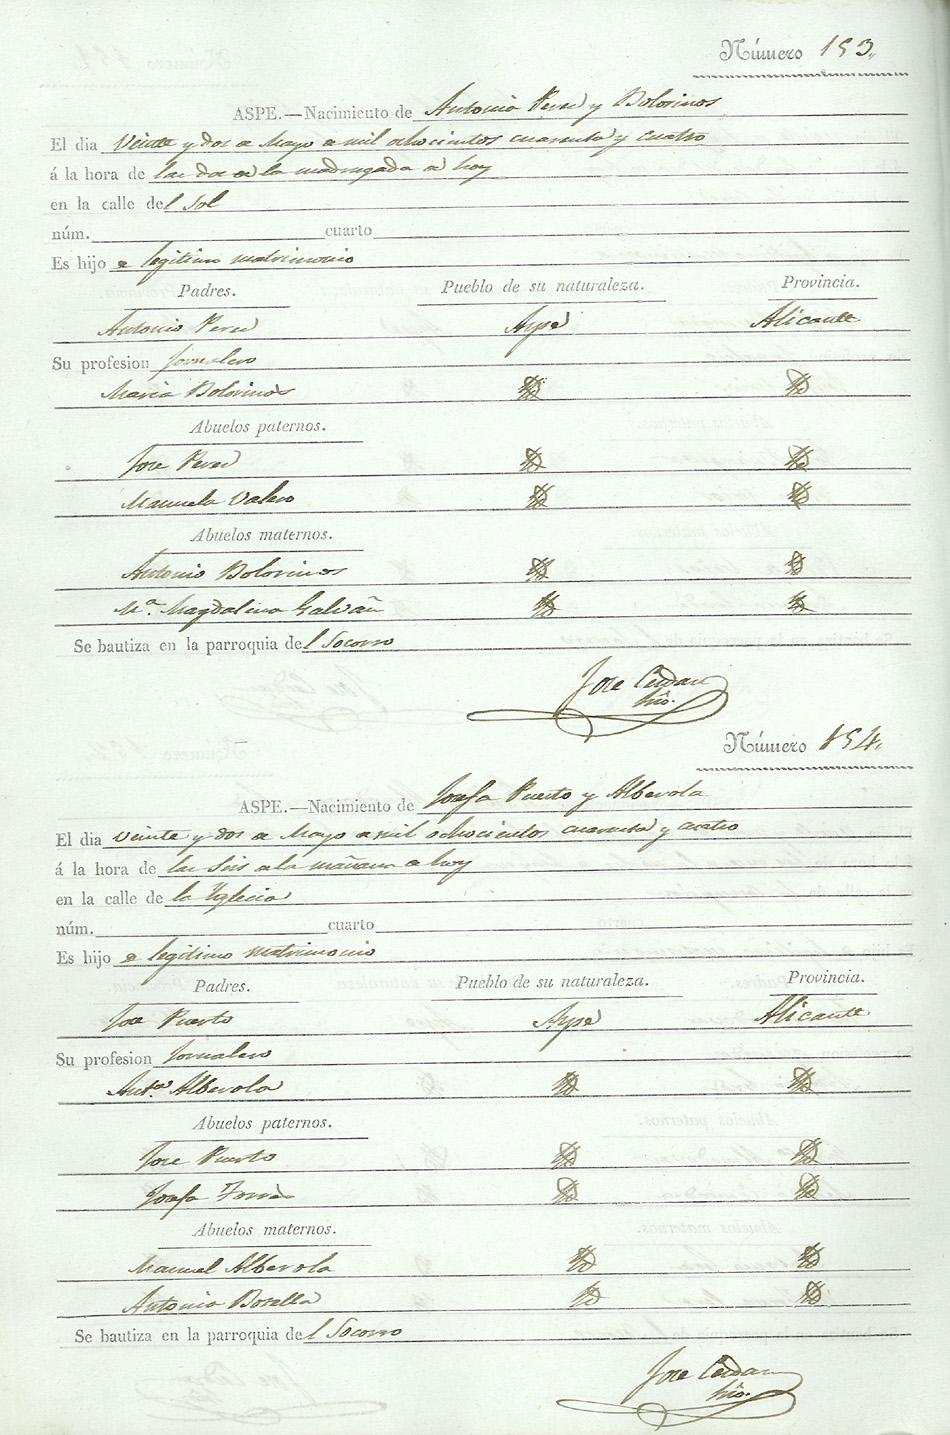 Número 153.
ASPE.—Nacimiento de Antonio Perez y Bolorinos
El dia veinte y dos de Mayo de mil ochocientos cuarenta y cuatro
á la hora de las dos de la madrugada de hoy
en la calle del Sol
núm. cuarto
Es hijo de legitimo matrimonio
Padres. Pueblo de su naturaleza. Provincia.
Antonio Perez Aspe Alicante
Su profesion jornalero
Maria Bolorinos
Abuelos paternos.
Jose Perez
Manuela Valero
Abuelos maternos.
Antonio Bolorinos
Mª. Magdalena Galvañ
Se bautiza en la parroquia del Socorro
Jose Cerdan
Número 154.
ASPE.—Nacimiento de Josefa Puerto y Alberola
El dia veinte y dos de Mayo de mil ochocientos cuarenta y cuatro
á la hora de las seis de la mañana de hoy
en la calle de la Yglecia
núm. cuarto
Es hijo de legitimo matrimonio
Padres. Pueblo de su naturaleza. Provincia.
Jose Puerto Aspe Alicante
Su profesion Jornalero
Antª. Alberola
Abuelos paternos.
Jose Puerto
Josefa
Abuelos maternos.
Manuel Alberola
Antonia Botella
Se bautiza en la parroquia del Socorro
Jose Cerdan